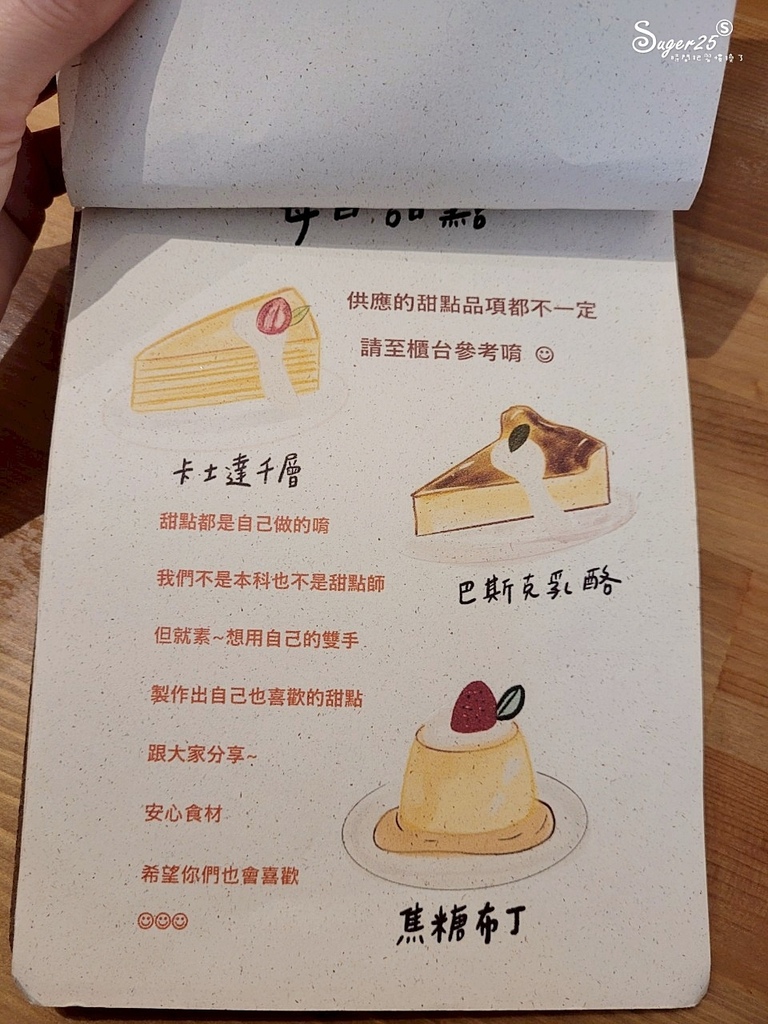 Suger25 S
時間把習慣換了
每日甜點
供應的甜點品項都不一定
請至櫃台參考唷 ☺
卡士達千層
甜點都是自己做的唷
我們不是本科也不是甜點師
但就素~想用自己的雙手
製作出自己也喜歡的甜點
跟大家分享~
安心食材
希望你們也會喜歡
☺☺☺
巴斯克乳酪
焦糖布丁